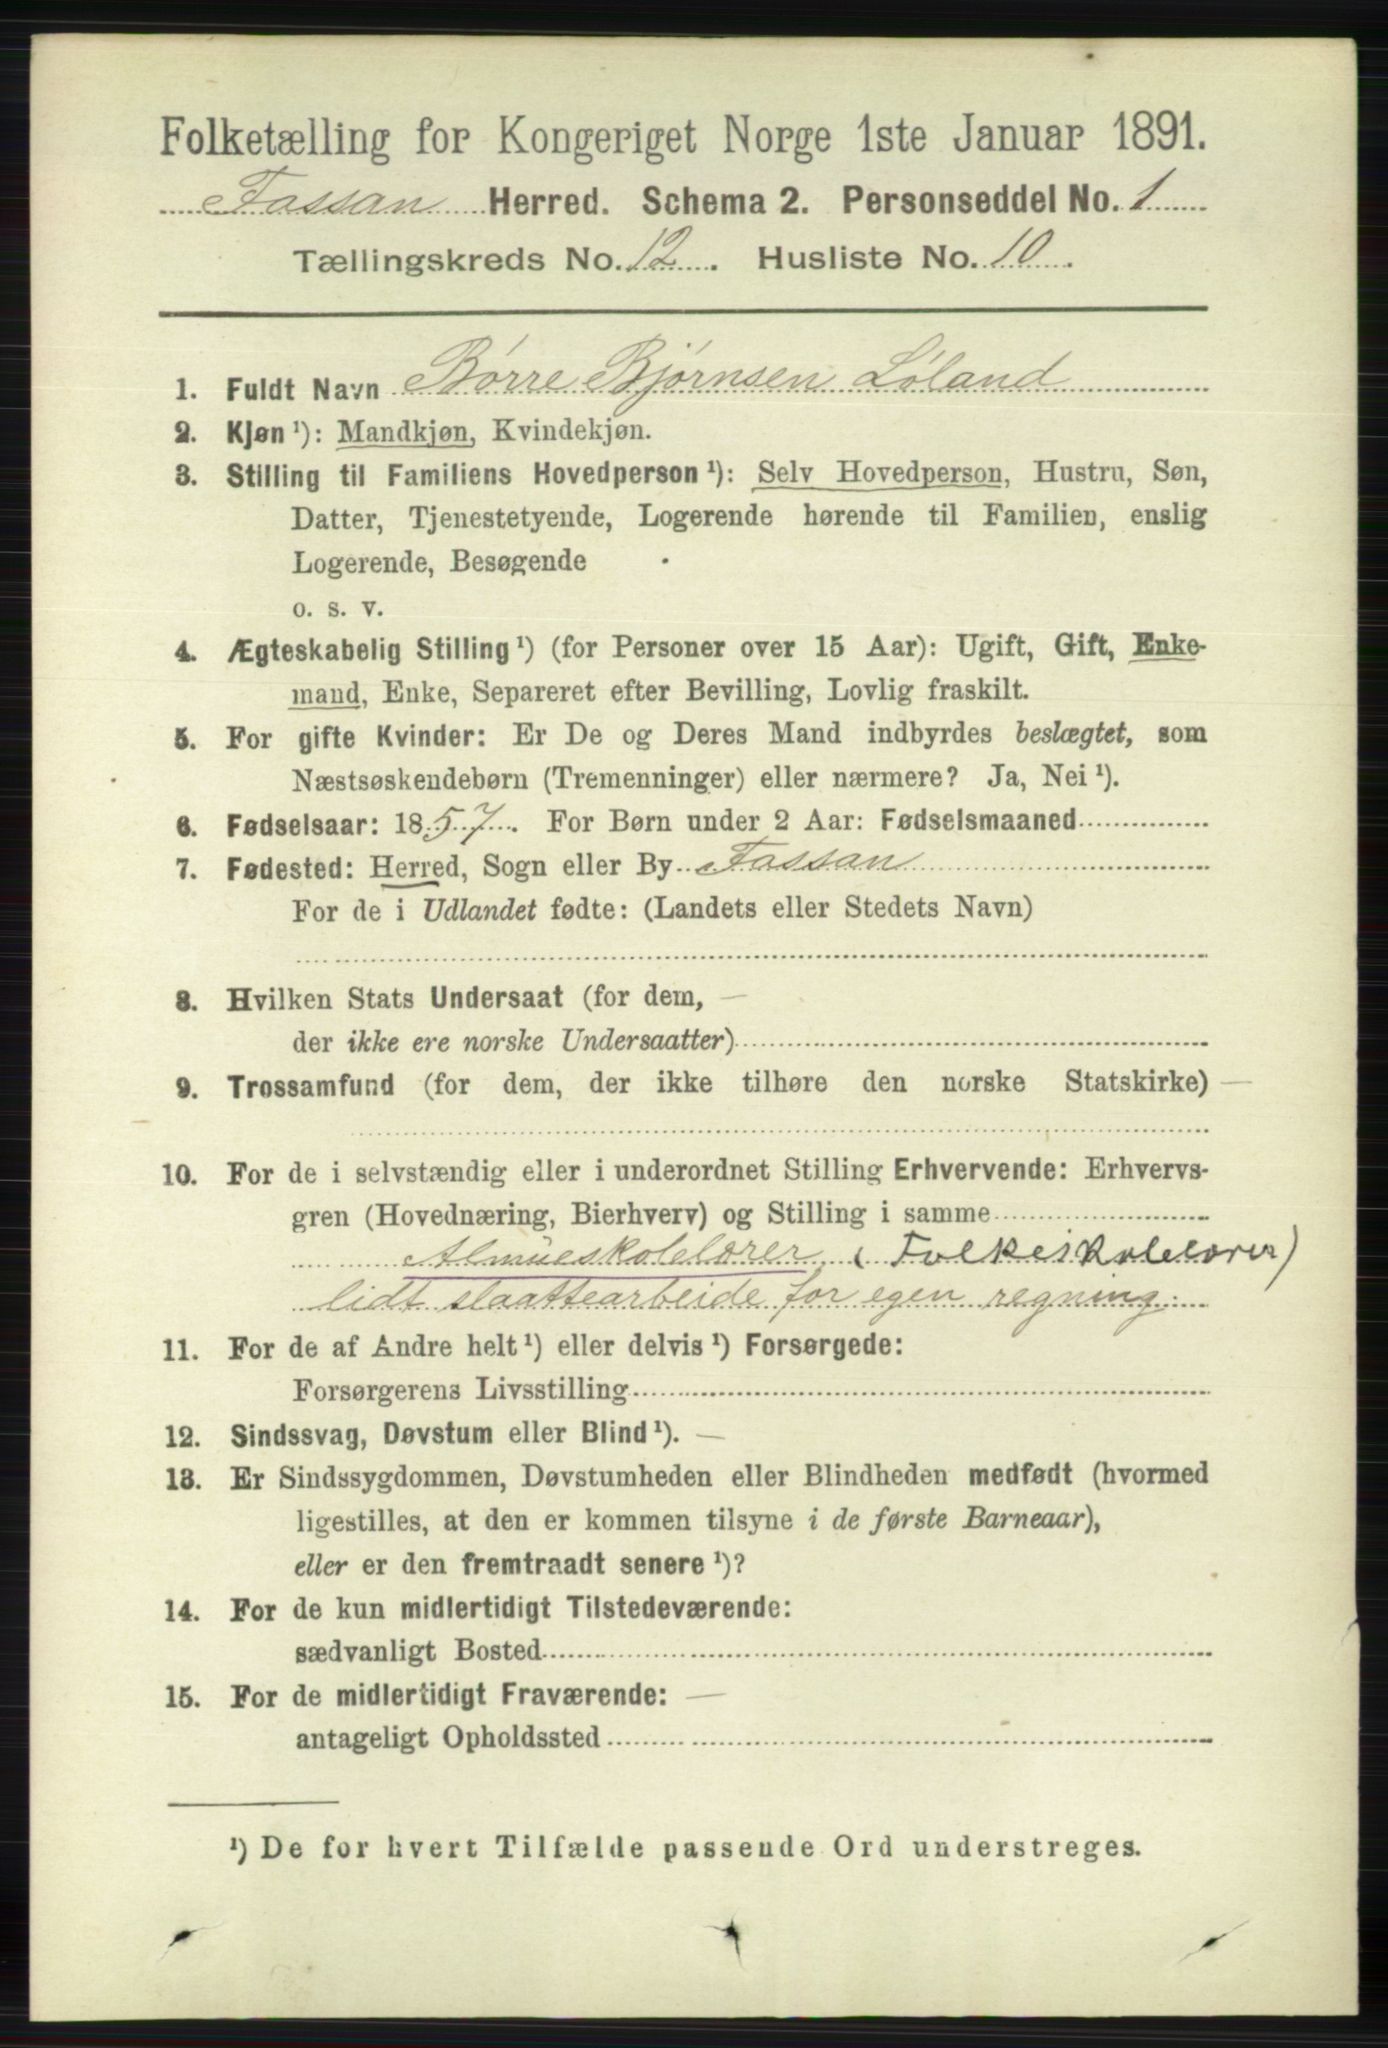 Folketælling for Kongeriget Norge 1ste Januar 1891.
Fossan Herred. Schema 2. Personseddel No. 1
Tællingskreds No. 12. Husliste No. 10.
1. Fuldt Navn Børre Bjørnsen Løland
2. Kjøn ¹): Mandkjøn, Kvindekjøn.
3. Stilling til Familiens Hovedperson ¹): Selv Hovedperson, Hustru, Søn,
Datter, Tjenestetyende, Logerende hørende til Familien, enslig
Logerende, Besøgende
o. s. v.
4. Ægteskabelig Stilling ¹) (for Personer over 15 Aar): Ugift, Gift, Enke-
mand, Enke, Separeret efter Bevilling, Lovlig fraskilt.
5. For gifte Kvinder: Er De og Deres Mand indbyrdes beslægtet, som
Næstsøskendebørn (Tremenninger) eller nærmere? Ja, Nei ¹).
6. Fødselsaar: 1857. For Børn under 2 Aar: Fødselsmaaned
7. Fødested: Herred, Sogn eller By Fossan
For de i Udlandet fødte: (Landets eller Stedets Navn)
8. Hvilken Stats Undersaat (for dem, —
der ikke ere norske Undersaatter)
9. Trossamfund (for dem, der ikke tilhøre den norske Statskirke) —
10. For de i selvstændig eller i underordnet Stilling Erhvervende: Erhvervs-
gren (Hovednæring, Bierhverv) og Stilling i samme
Almueskolelærer, (Folkeskolelærer)
lidt slaattearbeide for egen regning.
11. For de af Andre helt ¹) eller delvis ¹) Forsørgede:
Forsørgerens Livsstilling
12. Sindssvag, Døvstum eller Blind ¹). —
13. Er Sindssygdommen, Døvstumheden eller Blindheden medfødt (hvormed
ligestilles, at den er kommen tilsyne i de første Barneaar),
eller er den fremtraadt senere ¹)?
14. For de kun midlertidigt Tilstedeværende:
sædvanligt Bosted
15. For de midlertidigt Fraværende: —
antageligt Opholdssted
¹) De for hvert Tilfælde passende Ord understreges.